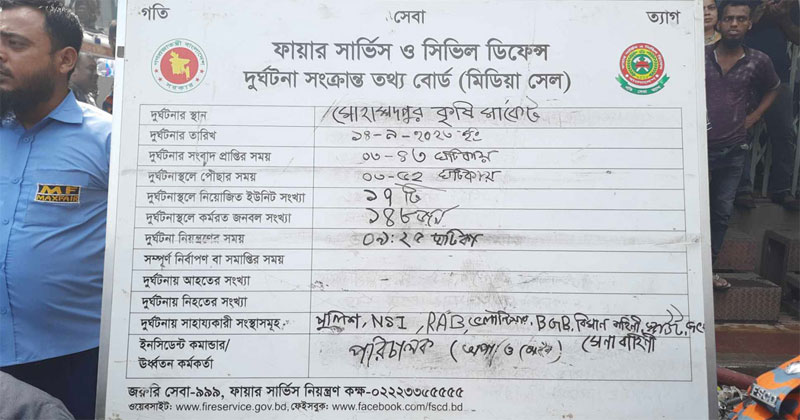 গতি সেবা ত্যাগ
ফায়ার সার্ভিস ও সিভিল ডিফেন্স
দুর্ঘটনা সংক্রান্ত তথ্য বোর্ড (মিডিয়া সেল)
দুর্ঘটনার স্থান মোহাম্মদপুর কৃষি মার্কেট
দুর্ঘটনার তারিখ ১৪-৯-২০২৩ খৃঃ
দুর্ঘটনার সংবাদ প্রাপ্তির সময় ০৩-৪৩ ঘটিকায়
দুর্ঘটনাস্থলে পৌছার সময় ০৩-৫২ ঘটিকায়
দুর্ঘটনাস্থলে নিয়োজিত ইউনিট সংখ্যা ১৭ টি
দুর্ঘটনাস্থলে কর্মরত জনবল সংখ্যা ১৪৮ জন
দুর্ঘটনা নিয়ন্ত্রণের সময় ০৯:২৫ ঘটিকা
সম্পূর্ণ নির্বাপণ বা সমাপ্তির সময়
দুর্ঘটনায় আহতের সংখ্যা
দুর্ঘটনায় নিহতের সংখ্যা
দুর্ঘটনায় সাহায্যকারী সংস্থাসমূহ পুলিশ, NSI, RAB, BGB, বিমান বাহিনী,
সেনা বাহিনী
ইনসিডেন্ট কমান্ডার/
ঊর্ধ্বতন কর্মকর্তা পরিচালক (অপাঃ ও মেইনঃ)
জরুরি সেবা-৯৯৯, ফায়ার সার্ভিস নিয়ন্ত্রণ কক্ষ-০২২২৩৩৫৫৫৫৫
ওয়েবসাইট: www.fireservice.gov.bd, ফেইসবুক: www.facebook.com/fscd.bd
MF
MAXFAIR